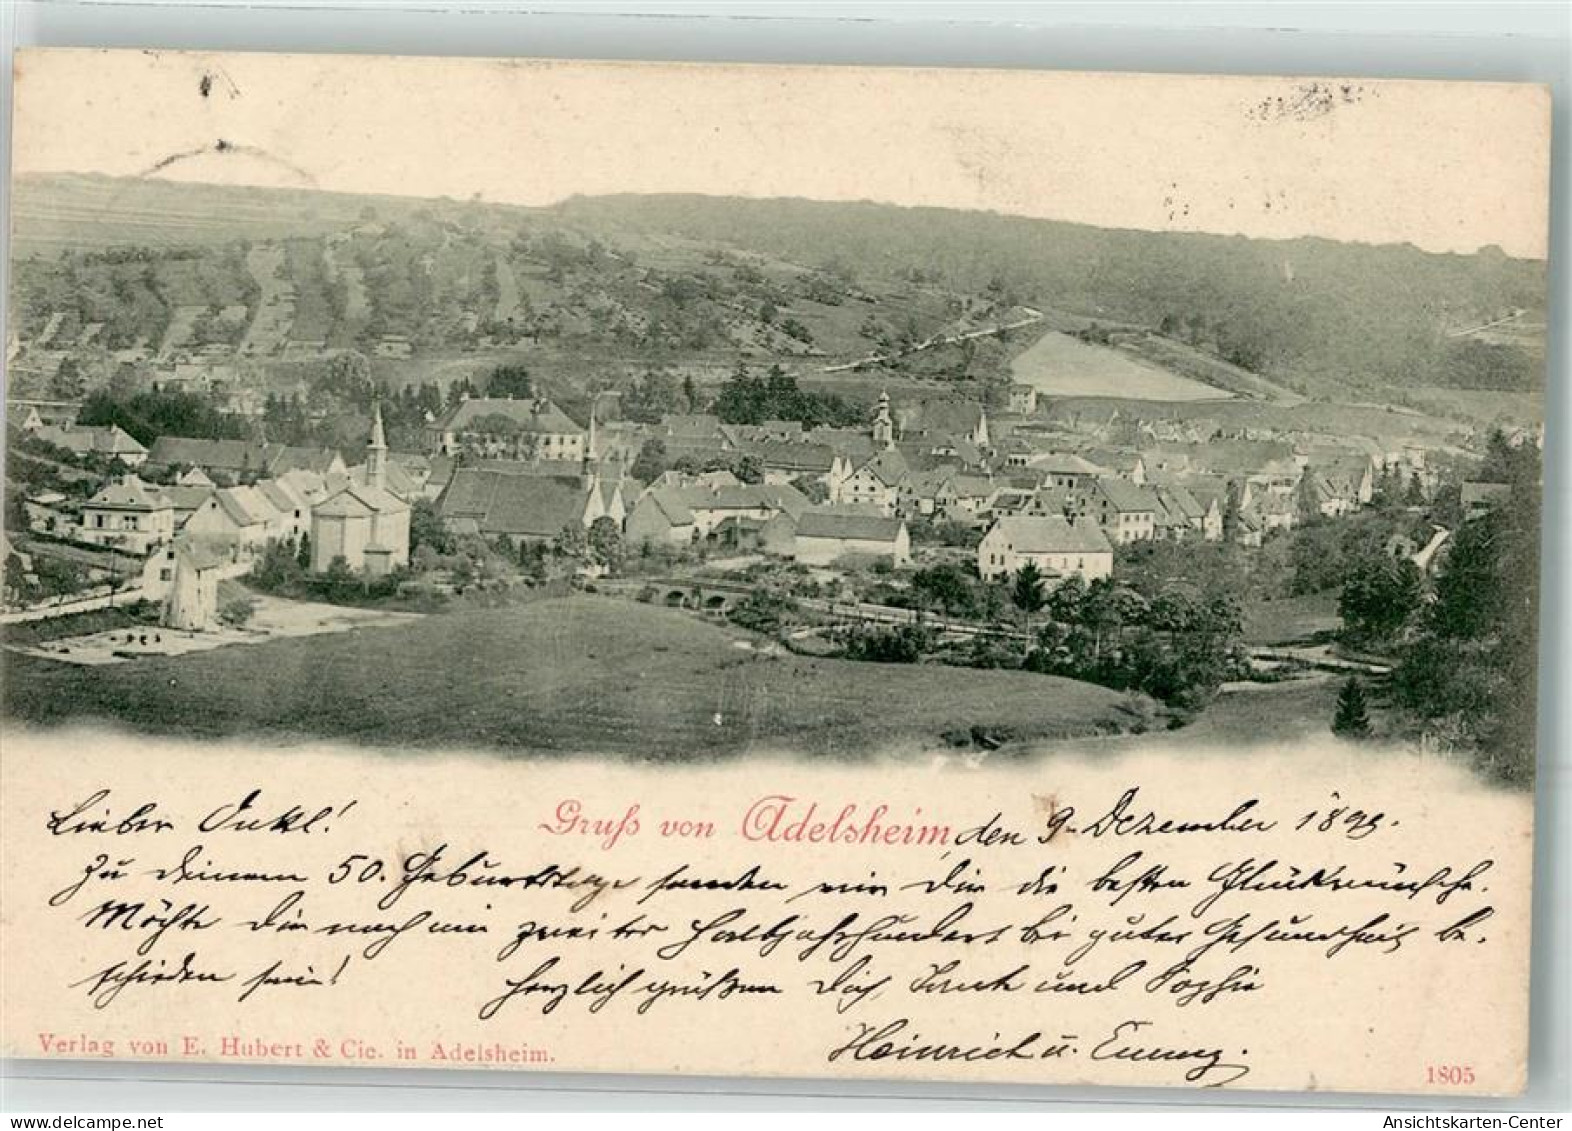 Lieber Onkel! Gruß von Adelsheim, den 9. Dezember 1899.
Zu deinem 50. Geburtstage senden wir Dir die besten Glückwünsche.
Möchte Dir noch ein zweites Halbjahrhundert bei guter Gesundheit be-
schieden sein! Herzlich grüßen Dich, Tante und Sophie
Heinrich u. Emmy.
Verlag von E. Hubert & Cie. in Adelsheim.
1805
delcampe.net
Ansichtskarten-Center